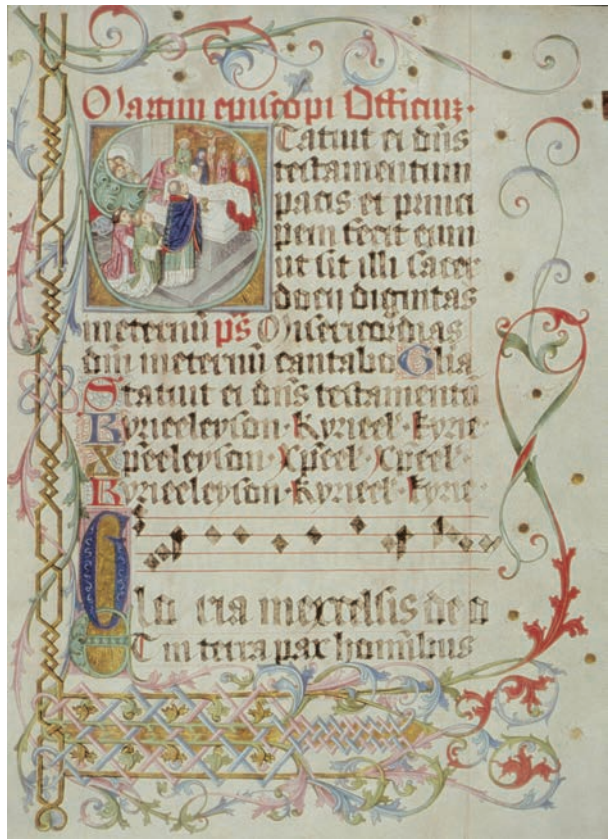 Martini episcopi Officiuz·
Statuit ei dn̄s
testamentum
pacis et princi
pem fecit eum
ut sit illi sacer
docij dignitas
ineternū ps̄ Misericordias
dn̄i ineternū cantabo Glīa
Statuit ei dn̄s testamentū
Kyrieeleyson· Kyrieel̄· Kyrie·
Xp̄eeleyson· Xp̄eel̄· Xp̄eel̄·
Kyrieeleyson· Kyrieel̄· Kyrie·
Glo ria inexcelsis de o
Et in terra pax hominibus